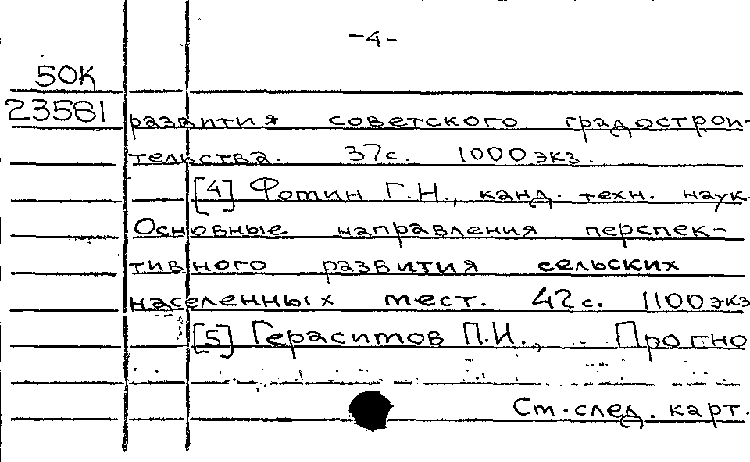 -4-
50К
23581
развития советского градострои-
тельства. 37с. 1000 экз.
[4] Фомин Г.Н., канд. техн. наук
Основные направления перспек-
тивного развития сельских
населенных мест. 42с. 1100 экз
[5] Герасимов П.И., Прогно
См. след. карт.